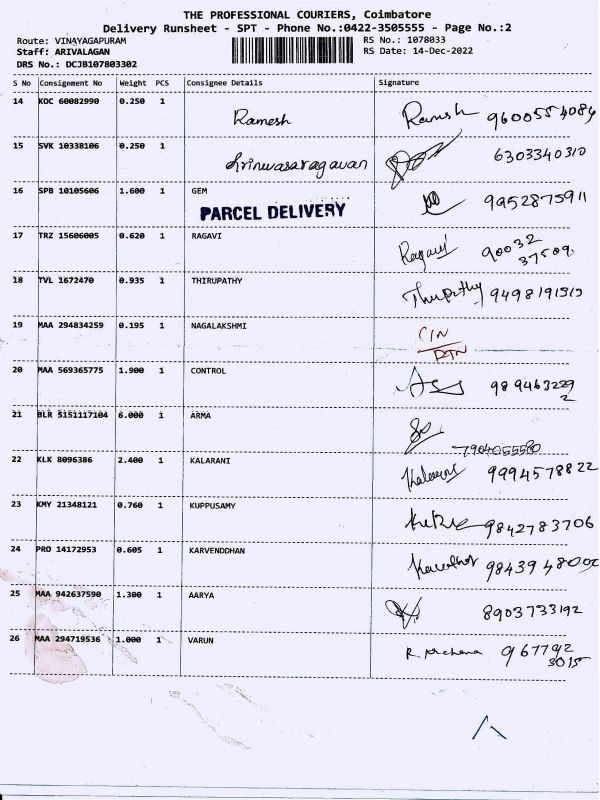 THE PROFESSIONAL COURIERS, Coimbatore
Delivery Runsheet - SPT - Phone No.:0422-3505555 - Page No.:2
Route: VINAYAGAPURAM RS No.: 1078033
Staff: ARIVALAGAN RS Date: 14-Dec-2022
DRS No.: DCJB107803302
S No Consignment No Weight PCS Consignee Details Signature
14 KOC 60082990 0.250 1
Ramesh Ramesh 9600554084
15 SVK 10338106 0.250 1
Srinivasaragavan 6303340310
16 SPB 10105606 1.600 1 GEM
PARCEL DELIVERY 9952875911
17 TRZ 15606005 0.620 1 RAGAVI
Ragavi 90032
37509
18 TVL 1672470 0.935 1 THIRUPATHY
Thirupathy 9498191515
19 MAA 294834259 0.195 1 NAGALAKSHMI
CIN
RTN
20 MAA 569365775 1.900 1 CONTROL
989463229
2
21 BLR 5151117104 6.000 1 ARMA
7904055580
22 KLK 8096386 2.400 1 KALARANI
9994578822
23 KMY 21348121 0.760 1 KUPPUSAMY
9842783706
24 PRO 14172953 0.605 1 KARVENDDHAN
25 MAA 942637590 1.300 1 AARYA
8903733192
26 MAA 294719536 1.000 1 VARUN
R Archana 967792
3015